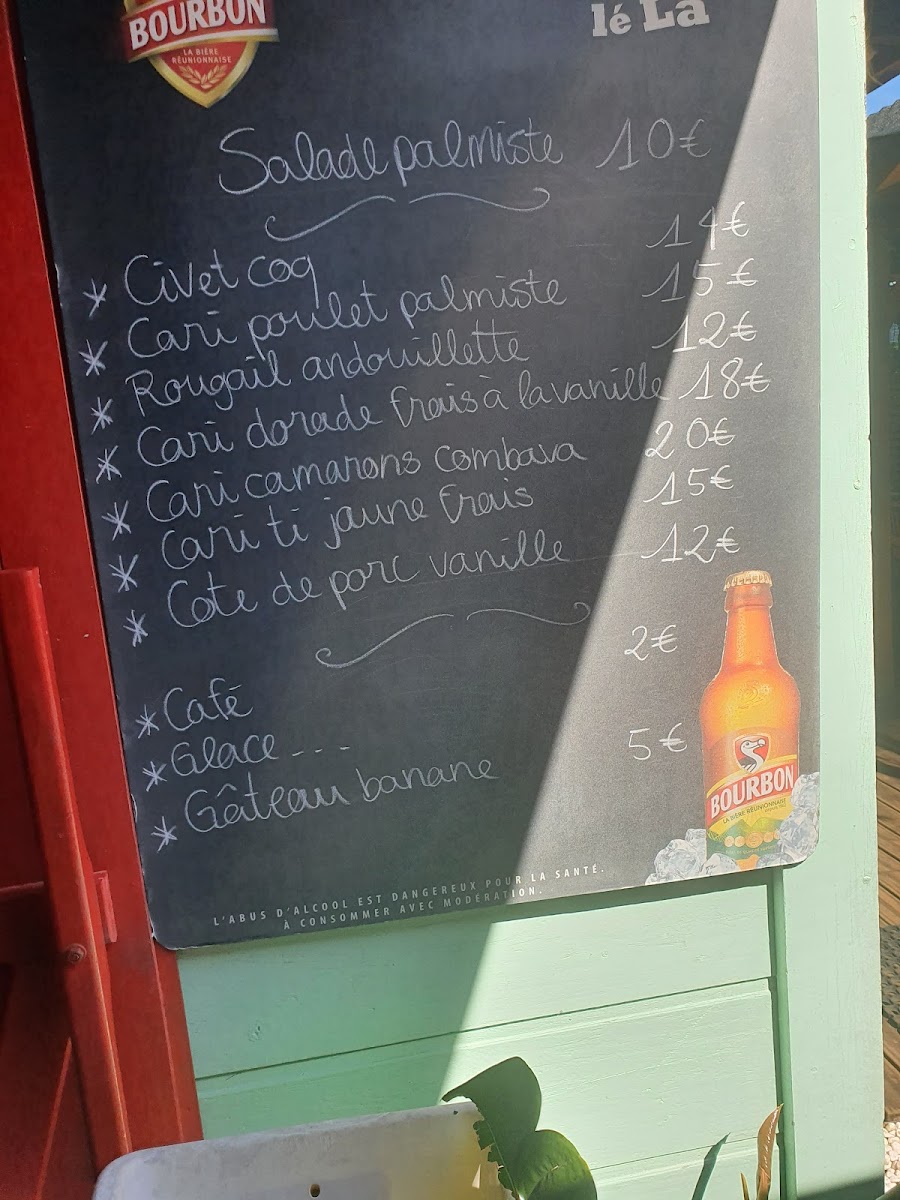 BOURBON
LA BIÈRE
RÉUNIONNAISE
lé La
Salade palmiste 10€
* Civet coq 14€
* Cari poulet palmiste 15€
* Rougail andouillette 12€
* Cari dorade frais à la vanille 18€
* Cari camarons combava 20€
* Cari ti jaune frais 15€
* Cote de porc vanille 12€
* Café 2€
* Glace ---
* Gâteau banane 5€
BOURBON
LA BIÈRE RÉUNIONNAISE
L'ABUS D'ALCOOL EST DANGEREUX POUR LA SANTÉ.
À CONSOMMER AVEC MODÉRATION.